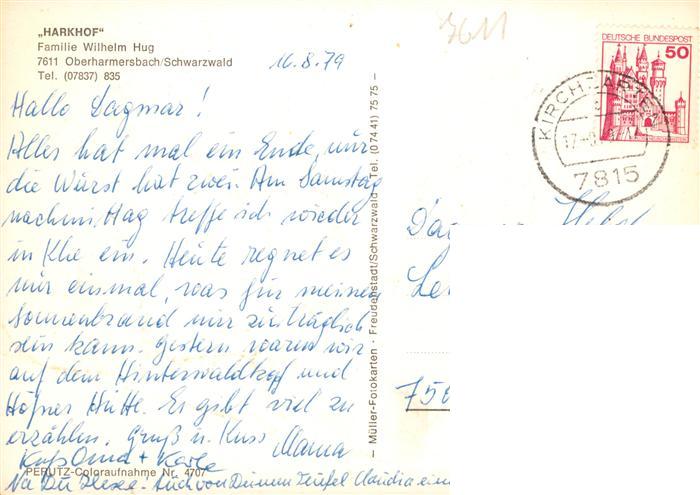 „HARKHOF"
Familie Wilhelm Hug
7611 Oberharmersbach/Schwarzwald
Tel. (07837) 835
16.8.79
7611
DEUTSCHE BUNDESPOST
50
KIRCHZARTEN
7815
Hallo Dagmar!
Alles hat mal ein Ende, nur
die Wurst hat zwei. Am Samstag
nachmittag treffe ich wieder
in Khe ein. Heute regnet es
nur einmal, was für meinen
Sonnenbrand nur zuträglich
sein kann. Gestern waren wir
auf dem Hinterwaldkopf und
Höfner Hütte. Es gibt viel zu
erzählen. Gruß u. Kuss Mama
Kuß Oma +
Na Du Hexe! Auch von Deinem Teufel Claudia ein
PERUTZ-Coloraufnahme Nr. 4707
— Müller-Fotokarten · Freudenstadt/Schwarzwald · Tel. (07441) 7575 —
750